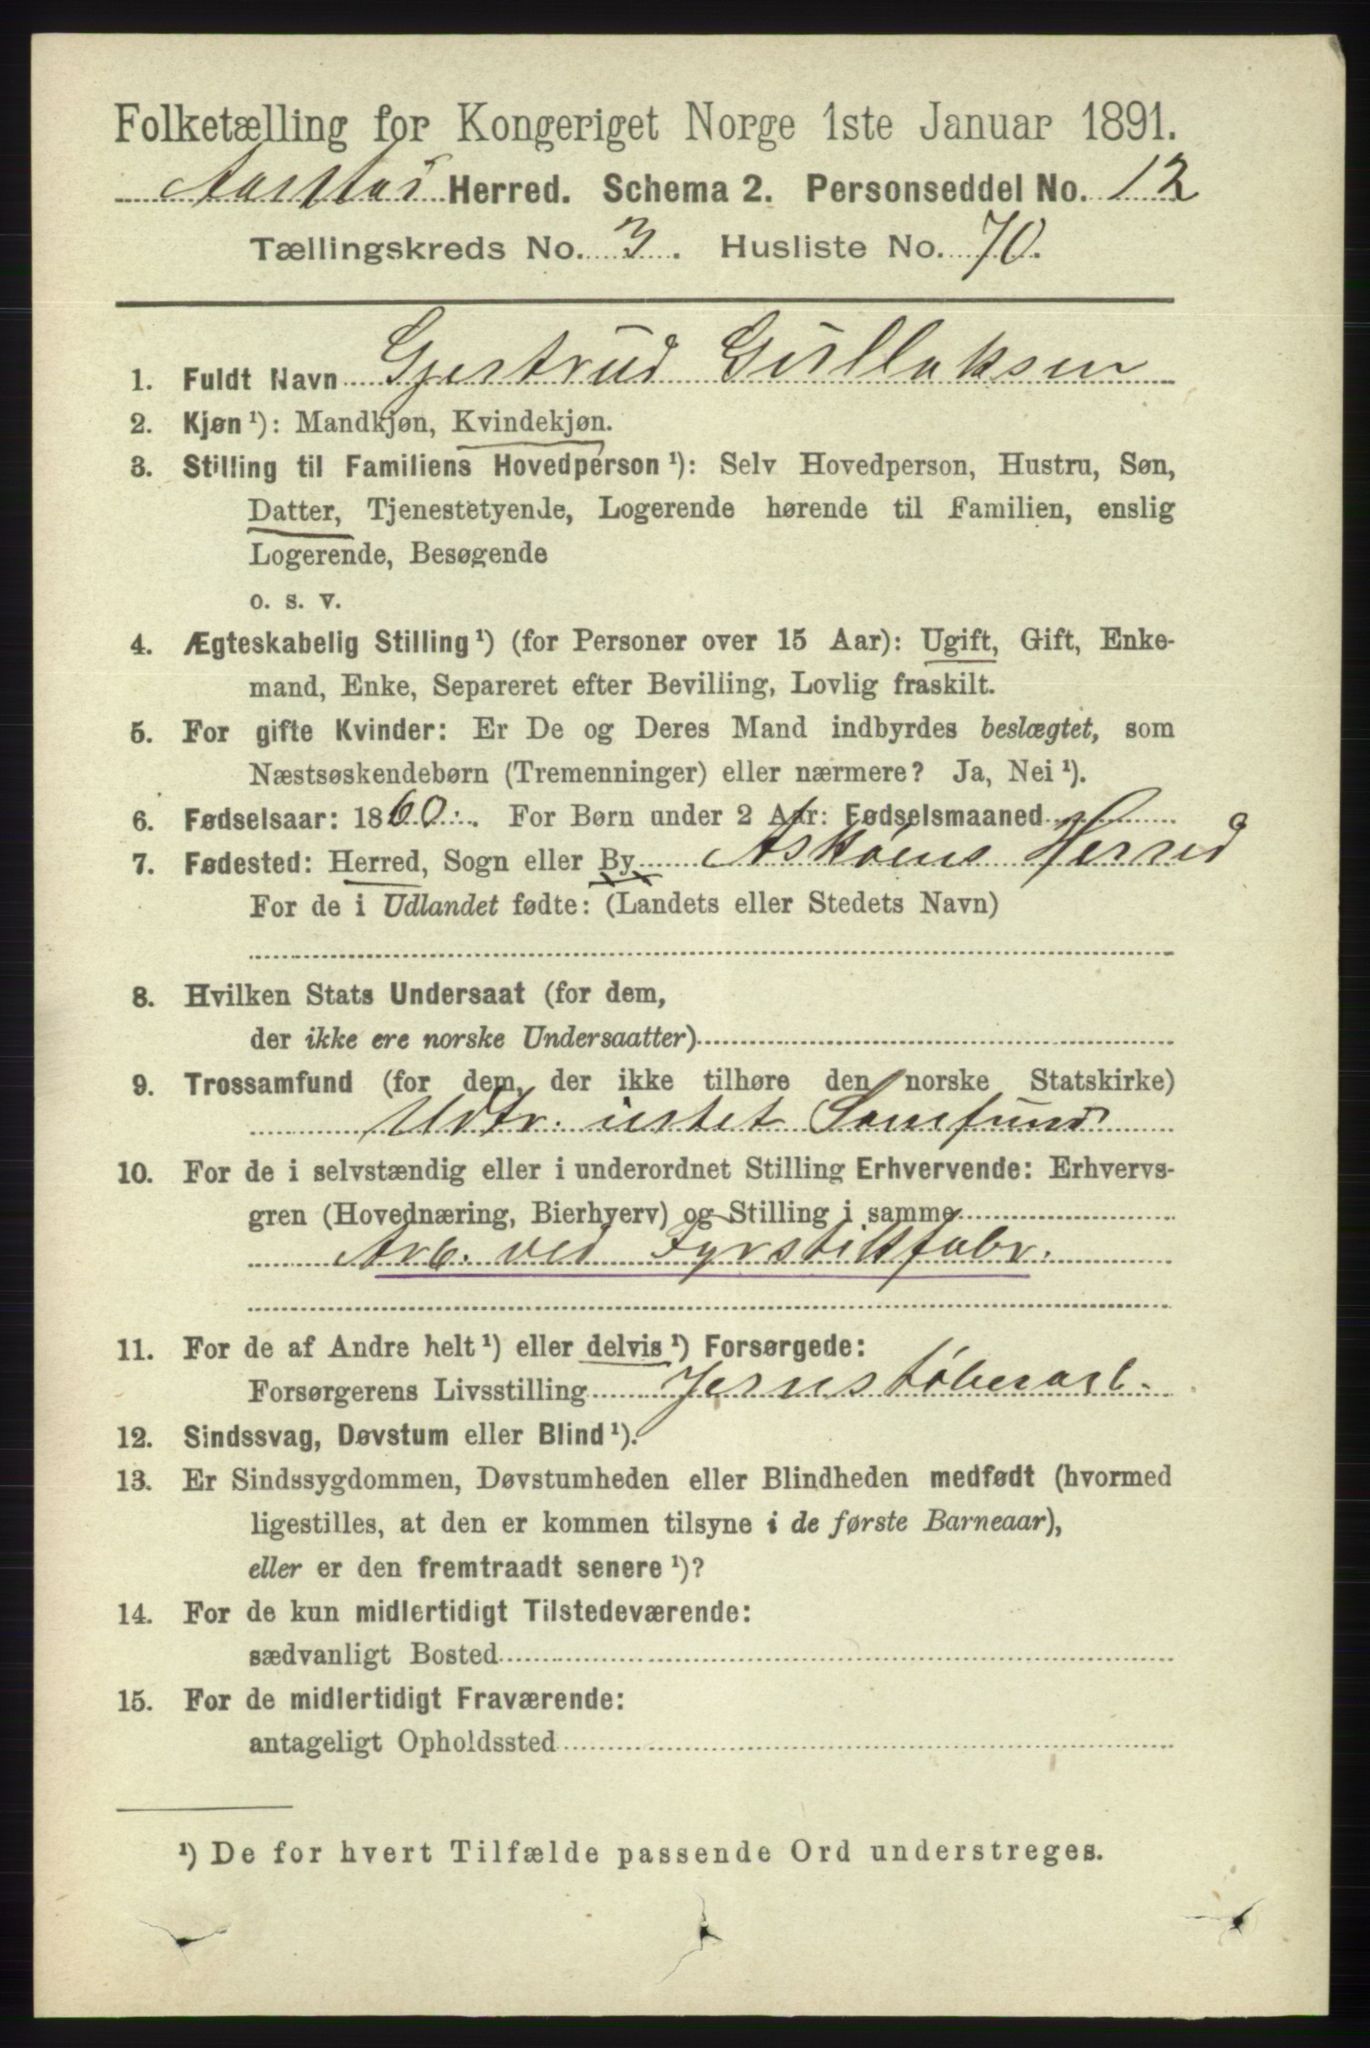 Folketælling for Kongeriget Norge 1ste Januar 1891.
Aarstad Herred. Schema 2. Personseddel No. 12
Tællingskreds No. 3. Husliste No. 70.
1. Fuldt Navn Gjertrud Gulbaksen
2. Kjøn ¹): Mandkjøn, Kvindekjøn.
3. Stilling til Familiens Hovedperson ¹): Selv Hovedperson, Hustru, Søn,
Datter, Tjenestetyende, Logerende hørende til Familien, enslig
Logerende, Besøgende
o. s. v.
4. Ægteskabelig Stilling ¹) (for Personer over 15 Aar): Ugift, Gift, Enke-
mand, Enke, Separeret efter Bevilling, Lovlig fraskilt.
5. For gifte Kvinder: Er De og Deres Mand indbyrdes beslægtet, som
Næstsøskendebørn (Tremenninger) eller nærmere? Ja, Nei ¹).
6. Fødselsaar: 1860. For Børn under 2 Aar: Fødselsmaaned
7. Fødested: Herred, Sogn eller By Askøens Herred
For de i Udlandet fødte: (Landets eller Stedets Navn)
8. Hvilken Stats Undersaat (for dem,
der ikke ere norske Undersaatter)
9. Trossamfund (for dem, der ikke tilhøre den norske Statskirke)
Udtr. intet Samfund
10. For de i selvstændig eller i underordnet Stilling Erhvervende: Erhvervs-
gren (Hovednæring, Bierhverv) og Stilling i samme
Arb. ved Fyrstikfabr.
11. For de af Andre helt ¹) eller delvis ¹) Forsørgede:
Forsørgerens Livsstilling Jernstøberarb.
12. Sindssvag, Døvstum eller Blind ¹).
13. Er Sindssygdommen, Døvstumheden eller Blindheden medfødt (hvormed
ligestilles, at den er kommen tilsyne i de første Barneaar),
eller er den fremtraadt senere ¹)?
14. For de kun midlertidigt Tilstedeværende:
sædvanligt Bosted
15. For de midlertidigt Fraværende:
antageligt Opholdssted
¹) De for hvert Tilfælde passende Ord understreges.